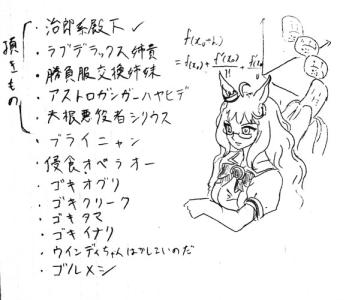 頂きもの
・治郎系殿下 ✓
・ラブデラックス姉貴
・勝負服交換姉妹
・アストロガンガーハヤヒデ
・大根悪役者シリウス
・ブライニャン
・侵食オペラオー
・ゴキオグリ
・ゴキクリーク
・ゴキタマ
・ゴキイナリ
・ウインディちゃんはでしいのだ
・ゴルメシ
f(x₀+h)
= f(x₀) + f'(x₀)/1! +